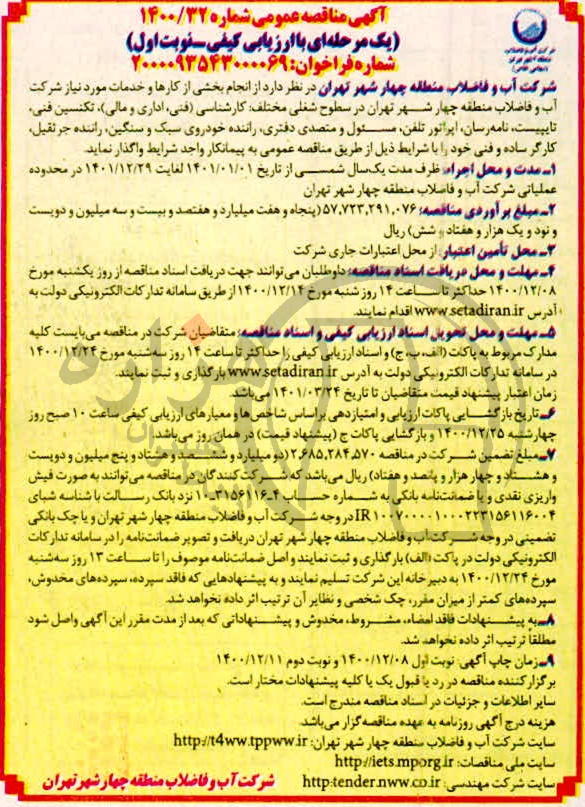 آگهی مناقصه عمومی شماره ۱۴۰۰/۳۲
(یک مرحله‌ای با ارزیابی کیفی ـ نوبت اول)
شماره فراخوان: ۲۰۰۰۰۹۳۵۴۳۰۰۰۰۶۹
شرکت آب و فاضلاب منطقه چهار شهر تهران در نظر دارد از انجام بخشی از کارها و خدمات مورد نیاز شرکت
آب و فاضلاب منطقه چهار شهر تهران در سطوح شغلی مختلف: کارشناسی (فنی، اداری و مالی)، تکنسین فنی،
تایپیست، نامه‌رسان، اپراتور تلفن، مسئول و متصدی دفتری، راننده خودروی سبک و سنگین، راننده جرثقیل،
کارگر ساده و فنی خود را با شرایط ذیل از طریق مناقصه عمومی به پیمانکار واجد شرایط واگذار نماید.
۱ـ مدت و محل اجرا: ظرف مدت یک‌سال شمسی از تاریخ ۱۴۰۱/۰۱/۰۱ لغایت ۱۴۰۱/۱۲/۲۹ در محدوده
عملیاتی شرکت آب و فاضلاب منطقه چهار شهر تهران
۲ـ مبلغ برآوردی مناقصه: ۵۷,۷۲۳,۲۹۱,۰۷۶ (پنجاه و هفت میلیارد و هفتصد و بیست و سه میلیون و دویست
و نود و یک هزار و هفتاد و شش) ریال
۳ـ محل تأمین اعتبار: از محل اعتبارات جاری شرکت
۴ـ مهلت و محل دریافت اسناد مناقصه: داوطلبان می‌توانند جهت دریافت اسناد مناقصه از روز یکشنبه مورخ
۱۴۰۰/۱۲/۰۸ حداکثر تا ساعت ۱۴ روز شنبه مورخ ۱۴۰۰/۱۲/۱۴ از طریق سامانه تدارکات الکترونیکی دولت به
آدرس www.setadiran.ir اقدام نمایند.
۵ـ مهلت و محل تحویل اسناد ارزیابی کیفی و اسناد مناقصه: متقاضیان شرکت در مناقصه می‌بایست کلیه
مدارک مربوط به پاکات (الف، ب، ج) و اسناد ارزیابی کیفی را حداکثر تا ساعت ۱۴ روز سه‌شنبه مورخ ۱۴۰۰/۱۲/۲۴
در سامانه تدارکات الکترونیکی دولت به آدرس www.setadiran.ir بارگذاری و ثبت نمایند.
زمان اعتبار پیشنهاد قیمت متقاضیان تا تاریخ ۱۴۰۱/۰۳/۲۴ می‌باشد.
۶ـ تاریخ بازگشایی پاکات ارزیابی و امتیازدهی براساس شاخص‌ها و معیارهای ارزیابی کیفی ساعت ۱۰ صبح روز
چهارشنبه ۱۴۰۰/۱۲/۲۵ و بازگشایی پاکات ج (پیشنهاد قیمت) در همان روز می‌باشد.
۷ـ مبلغ تضمین شرکت در مناقصه ۲,۶۸۵,۲۸۴,۵۷۰ (دو میلیارد و ششصد و هشتاد و پنج میلیون و دویست
و هشتاد و چهار هزار و پانصد و هفتاد) ریال می‌باشد که شرکت‌کنندگان در مناقصه می‌توانند به صورت فیش
واریزی نقدی و یا ضمانت‌نامه بانکی به شماره حساب ۴ـ۳۱۵۶۱۱۶ـ۱۰ نزد بانک رسالت با شناسه شبای
IR۱۰۰۷۰۰۰۰۱۰۰۰۲۲۳۱۵۶۱۱۶۰۰۴ در وجه شرکت آب و فاضلاب منطقه چهار شهر تهران و یا چک بانکی
تضمینی در وجه شرکت آب و فاضلاب منطقه چهار شهر تهران دریافت و تصویر ضمانت‌نامه را در سامانه تدارکات
الکترونیکی دولت در پاکت (الف) بارگذاری و ثبت نمایند و اصل ضمانت‌نامه موصوف را تا ساعت ۱۳ روز سه‌شنبه
مورخ ۱۴۰۰/۱۲/۲۴ به دبیرخانه این شرکت تسلیم نمایند و به پیشنهادهایی که فاقد سپرده، سپرده‌های مخدوش،
سپرده‌های کمتر از میزان مقرر، چک شخصی و نظایر آن ترتیب اثر داده نخواهد شد.
۸ـ به پیشنهادات فاقد امضاء، مشروط، مخدوش و پیشنهاداتی که بعد از مدت مقرر این آگهی واصل شود
مطلقا ترتیب اثر داده نخواهد شد.
۹ـ زمان چاپ آگهی: نوبت اول ۱۴۰۰/۱۲/۰۸ و نوبت دوم ۱۴۰۰/۱۲/۱۱
برگزارکننده مناقصه در رد یا قبول یک یا کلیه پیشنهادات مختار است.
سایر اطلاعات و جزئیات در اسناد مناقصه مندرج است.
هزینه درج آگهی روزنامه به عهده مناقصه‌گزار می‌باشد.
سایت شرکت آب و فاضلاب منطقه چهار شهر تهران: http://t4ww.tppww.ir
سایت ملی مناقصات: http://iets.mporg.ir
سایت شرکت مهندسی: http:tender.nww.co.ir
شرکت آب و فاضلاب منطقه چهار شهر تهران